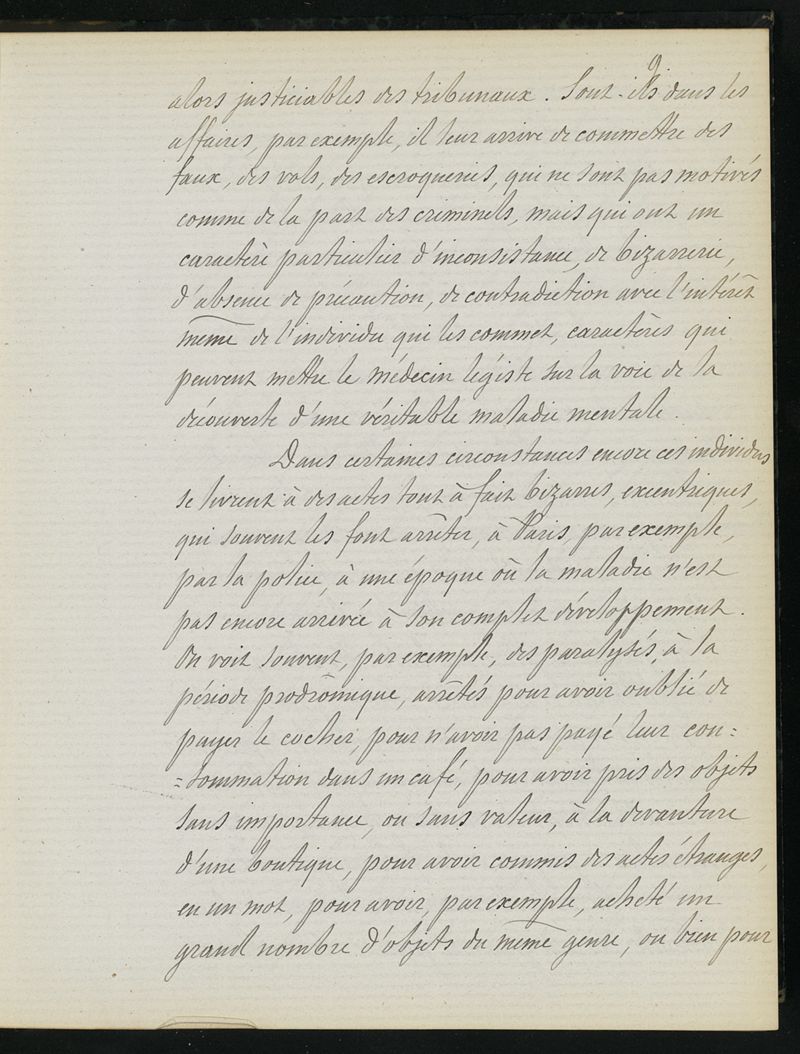 9
alors justiciables des tribunaux. Sont-ils dans les
affaires, par exemple, il leur arrive de commettre des
faux, des vols, des escroqueries, qui ne sont pas motivés
comme de la part des criminels, mais qui ont un
caractère particulier d'inconsistance, de bizarrerie,
d'absence de précaution, de contradiction avec l'intérêt
même de l'individu qui les commet, caractères qui
peuvent mettre le médecin légiste sur la voie de la
découverte d'une véritable maladie mentale.
Dans certaines circonstances encore ces individus
se livrent à des actes tout à fait bizarres, excentriques,
qui souvent les font arrêter, à Paris, par exemple,
par la police, à une époque où la maladie n'est
pas encore arrivée à son complet développement.
On voit souvent, par exemple, des paralysés, à la
période prodrômique, arrêtés pour avoir oublié de
payer le cocher, pour n'avoir pas payé leur con=
=sommation dans un café, pour avoir pris des objets
sans importance, ou sans valeur, à la devanture
d'une boutique, pour avoir commis des actes étranges,
en un mot, pour avoir, par exemple, acheté un
grand nombre d'objets du même genre, ou bien pour